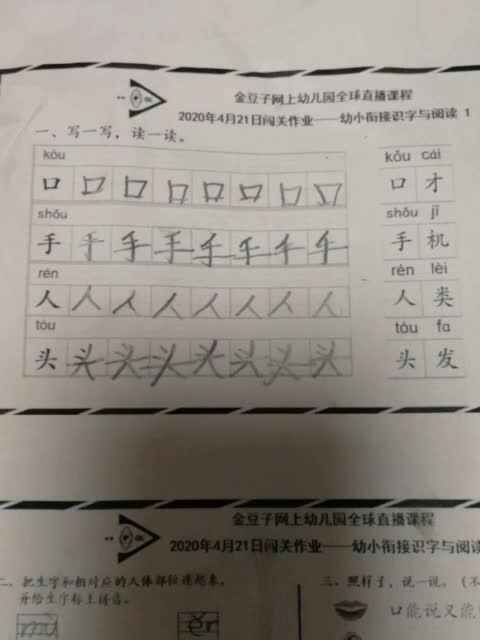 金豆子网上幼儿园全球直播课程
2020年4月21日闯关作业——幼小衔接识字与阅读 1
一、写一写，读一读。
kǒu
口 口 口 口 口 口 口 口
shǒu
手 手 手 手 手 手 手 手
rén
人 人 人 人 人 人 人 人
tóu
头 头 头 头 头 头 头 头
kǒu cái
口 才
shǒu jī
手 机
rén lèi
人 类
tóu fa
头 发
金豆子网上幼儿园全球直播课程
2020年4月21日闯关作业——幼小衔接识字与阅读
二、把生字和相对应的人体部位连起来，
并给生字标上拼音。
三、照样子，说一说。（不
口能说又能